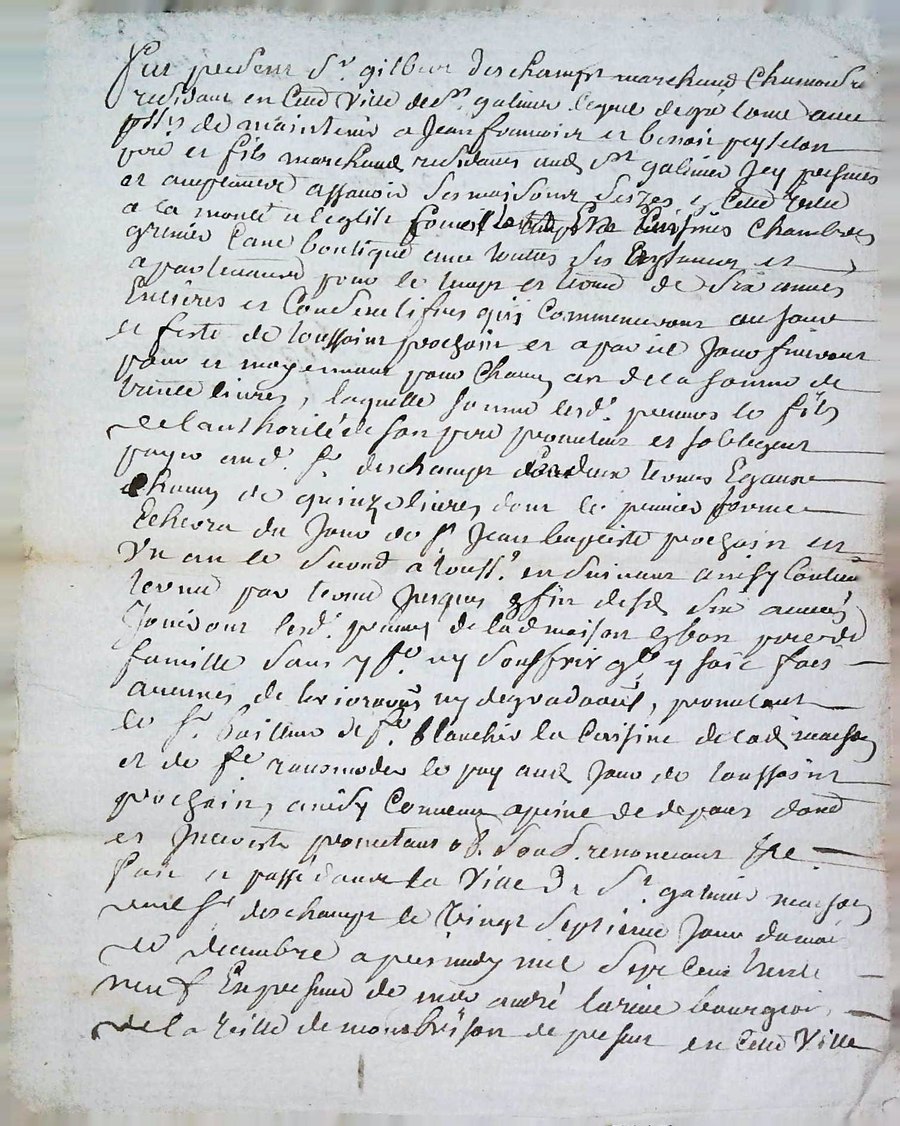 Fut present Sr. gilbert deschamps marchand Chamoise
residant en Cette Ville de St. galmier lequel de gré loue avec
pssse de maintenir a Jean francois et benoit peyselon
pere et fils marchand residants aud St galmier Jcy presents
et acceptant assavoir Ses maisons Scizes en Cette Ville
a la monté a leglise Cuisines Chambres
grenier Cave boutique avec toutes Ses aysances et
apartenances pour le temps et terme de Six années
Entieres et Consecutives qui Commenceront au Jour
et feste de toussaint prochain et a pareil Jour finiront
pour et moyennant pour Chacun an de la Somme de
trente livres, laquelle Somme lesd. preneurs le fils
de lauthorité de Son pere promettent et Sobligent
payer aud. Sr. deschamps deux termes Egaux
Chacun de quinze livres dont le premier terme
Echeora du Jour de St Jean baptiste prochain en
Un an le Second a touss. en Suivant ainsy Continuer
terme par terme Jusques a fin desd Six années
Jouiront lesd. preneurs de lad maison en bon pere de
famille Sans y fe. ny Souffrir qlz y soit fait
aucunes deteriorations ny degradaons, promettant
le Sr. bailleur de fe. blanchir la Cuisine de lad. maison
et de fe racomoder le puy aud Jour de toussaint
prochain, ainsy Convenu a peine de depens dom
et Jnterests promettant ob. Soud. renoncant &c
fait et passé dans la Ville de St. galmier maison
dud Sr. deschamps le Vingt Septieme Jour du mois
de decembre apres midy mil Sept Cent trente
neuf En presence de mre andré bourgeois
de la Ville de montbrison de present en Cette Ville